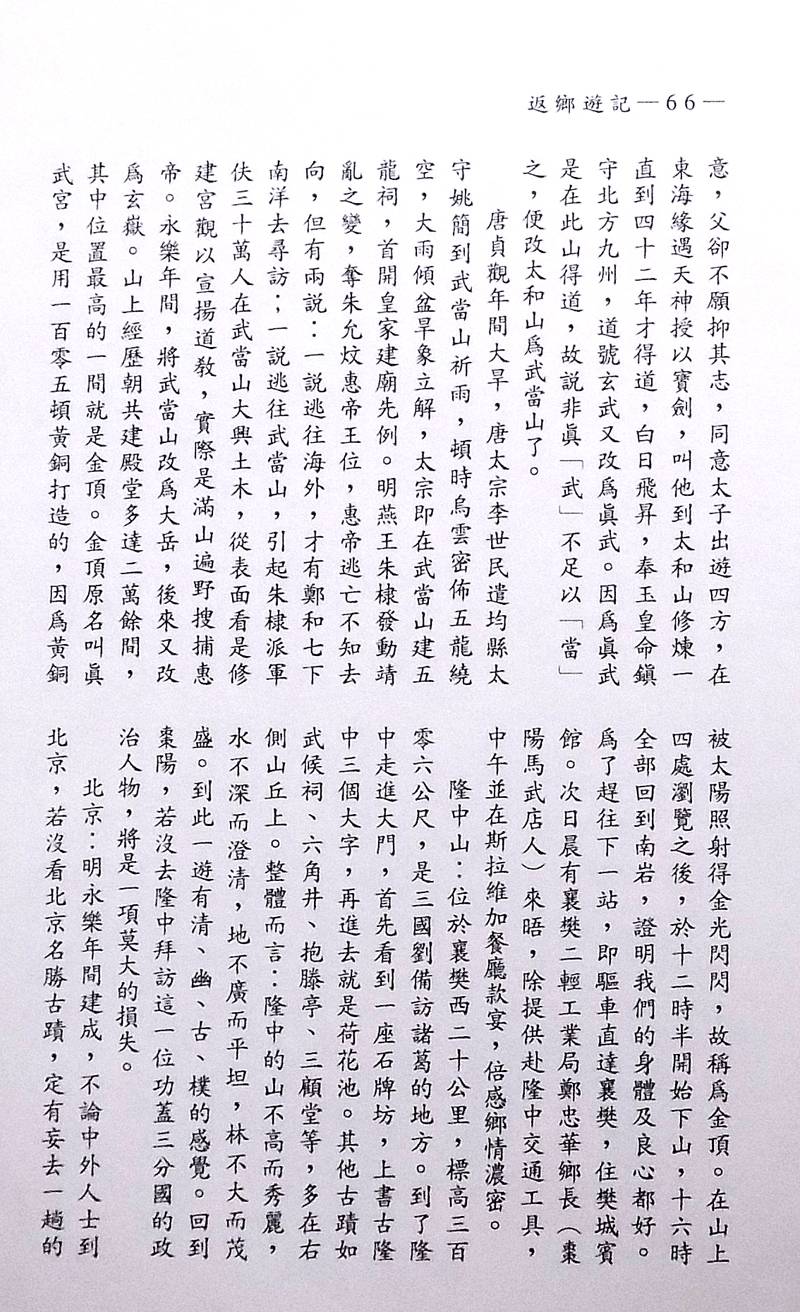 返鄉遊記—66—
意，父卻不願抑其志，同意太子出遊四方，在
東海緣遇天神授以寶劍，叫他到太和山修煉一
直到四十二年才得道，白日飛昇，奉玉皇命鎮
守北方九州，道號玄武又改爲眞武。因爲眞武
是在此山得道，故説非眞「武」不足以「當」
之，便改太和山爲武當山了。
唐貞觀年間大旱，唐太宗李世民遣均縣太
守姚簡到武當山祈雨，頓時烏雲密佈五龍繞
空，大雨傾盆旱象立解，太宗即在武當山建五
龍祠，首開皇家建廟先例。明燕王朱棣發動靖
亂之變，奪朱允炆惠帝王位，惠帝逃亡不知去
向，但有兩説：一説逃往海外，才有鄭和七下
南洋去尋訪；一説逃往武當山，引起朱棣派軍
伕三十萬人在武當山大興土木，從表面看是修
建宮觀以宣揚道教，實際是滿山遍野搜捕惠
帝。永樂年間，將武當山改爲大岳，後來又改
爲玄嶽。山上經歷朝共建殿堂多達二萬餘間，
其中位置最高的一間就是金頂。金頂原名叫眞
武宮，是用一百零五頓黃銅打造的，因爲黃銅
被太陽照射得金光閃閃，故稱爲金頂。在山上
四處瀏覽之後，於十二時半開始下山，十六時
全部回到南岩，證明我們的身體及良心都好。
爲了趕往下一站，即驅車直達襄樊，住樊城賓
館。次日晨有襄樊二輕工業局鄭忠華鄉長（棗
陽馬武店人）來晤，除提供赴隆中交通工具，
中午並在斯拉維加餐廳款宴，倍感鄉情濃密。
隆中山：位於襄樊西二十公里，標高三百
零六公尺，是三國劉備訪諸葛的地方。到了隆
中走進大門，首先看到一座石牌坊，上書古隆
中三個大字，再進去就是荷花池。其他古蹟如
武侯祠、六角井、抱膝亭、三顧堂等，多在右
側山丘上。整體而言：隆中的山不高而秀麗，
水不深而澄清，地不廣而平坦，林不大而茂
盛。到此一遊有清、幽、古、樸的感覺。回到
棗陽，若沒去隆中拜訪這一位功蓋三分國的政
治人物，將是一項莫大的損失。
北京：明永樂年間建成，不論中外人士到
北京，若沒看北京名勝古蹟，定有妄去一趟的